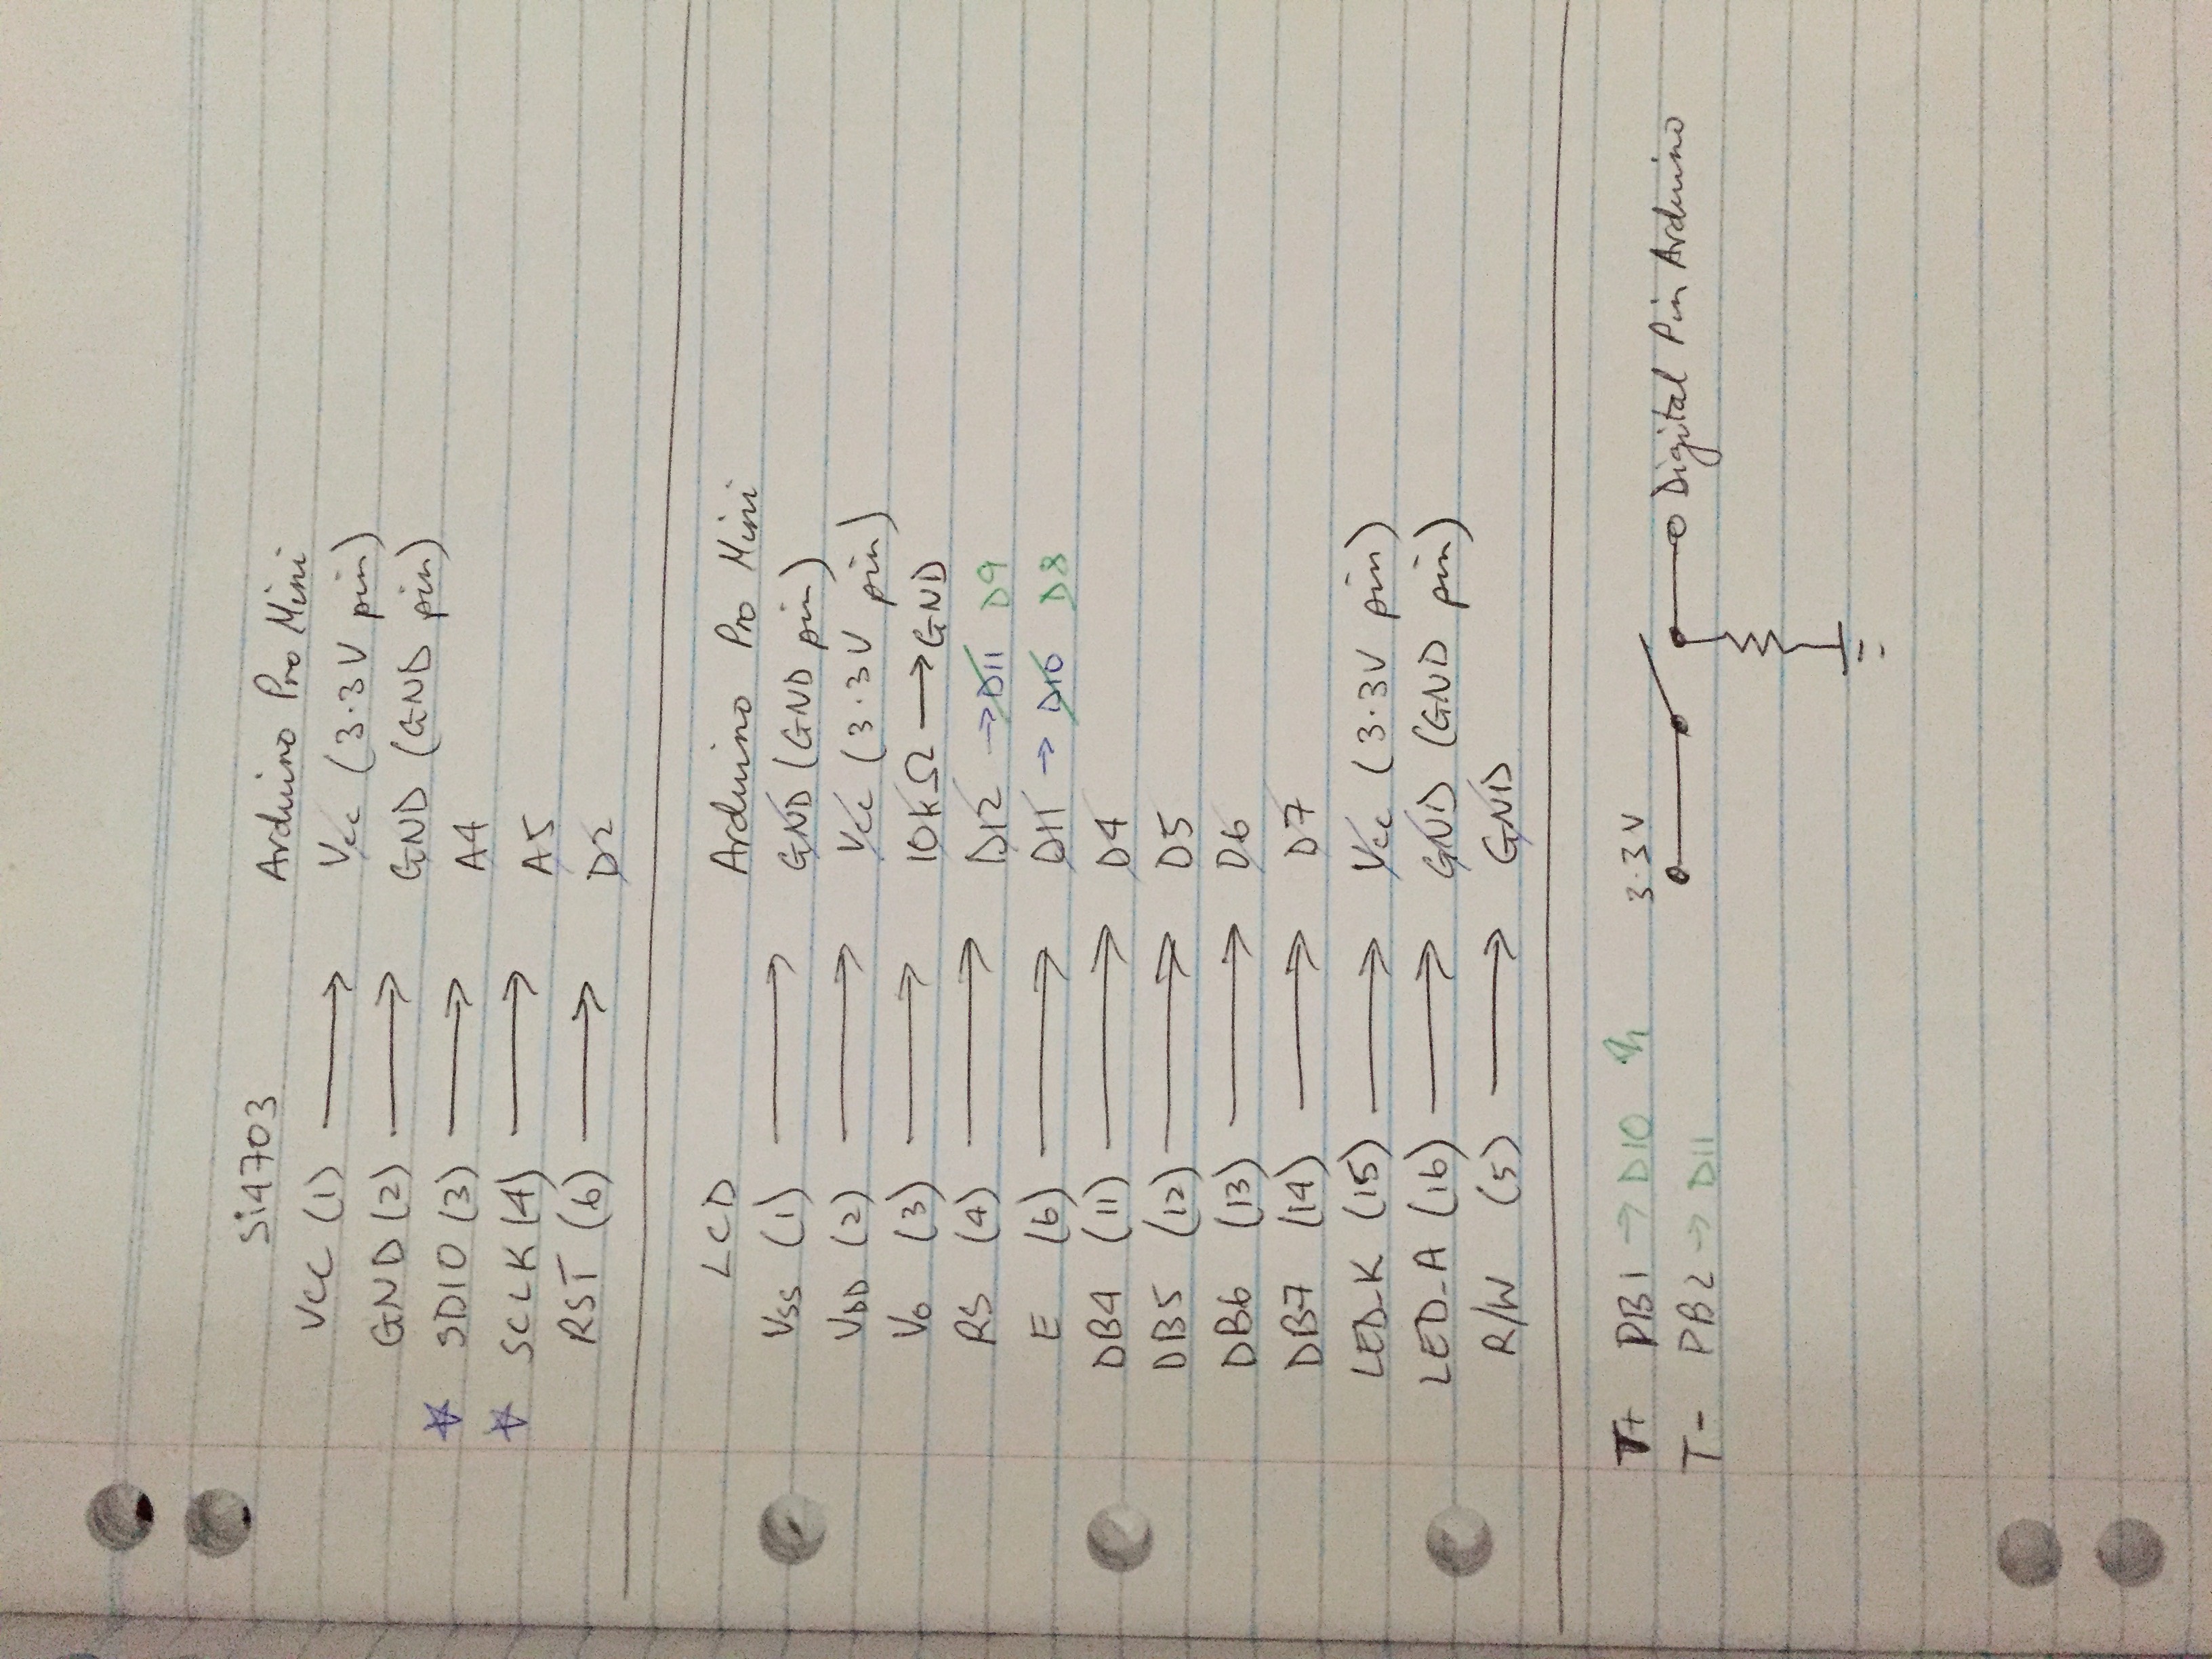 Si4703 Arduino Pro Mini
VCC (1) → Vcc (3.3V pin)
GND (2) → GND (GND pin)
☆ SDIO (3) → A4
☆ SCLK (4) → A5
RST (6) → D2
LCD Arduino Pro Mini
Vss (1) → GND (GND pin)
VDD (2) → Vcc (3.3V pin)
Vo (3) → 10kΩ → GND
RS (4) → D12 → D11 D9
E (6) → D11 → D10 D8
DB4 (11) → D4
DB5 (12) → D5
DB6 (13) → D6
DB7 (14) → D7
LED_K (15) → Vcc (3.3V pin)
LED_A (16) → GND (GND pin)
R/W (5) → GND
T+ PB1 → D10 3.3V
T- PB2 → D11 Digital Pin Arduino